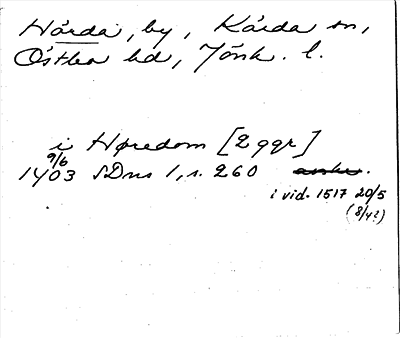 Hårda, by, Kärda sn,
Östbo hd, Jönk. l.
i Høredom [2 ggr]
9/6
1403 SDns 1, s. 260
i vid. 1517 20/5
(8/4?)